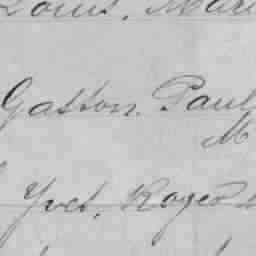 Louis, Mar
Gaston. Paul
M
Yvet, Roger